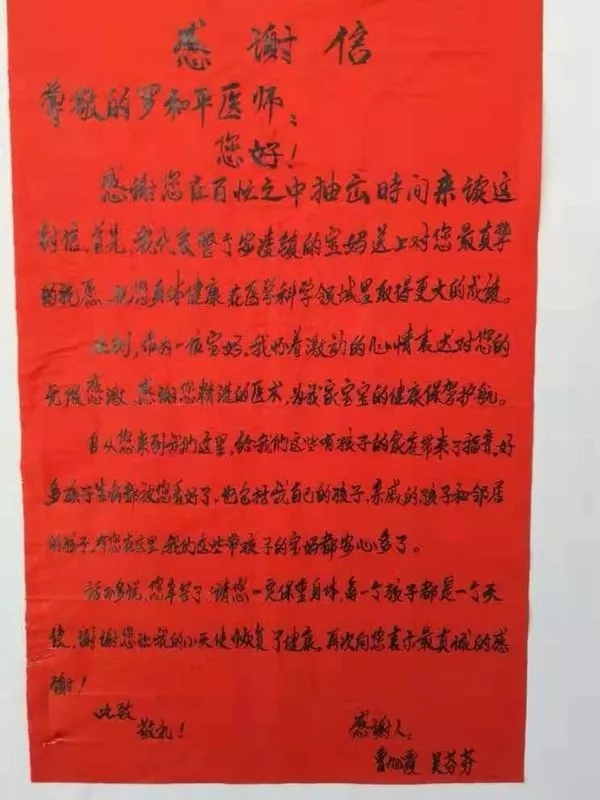 感谢信
尊敬的罗和平医师：
您好！
感谢您在百忙之中抽出时间来读这
封信，首先，我代表整个安凌镇的宝妈送上对您最真挚
的祝愿，祝您身体健康，在医学科学领域里取得更大的成绩。
此刻，作为一位宝妈，我怀着激动的心情表达对您的
无限感激，感谢您精湛的医术，为我家宝宝的健康保驾护航。
自从您来到我们这里，给我们这些有孩子的家庭带来了福音，好
多孩子生病都被您看好了，也包括我自己的孩子，亲戚的孩子和邻居
的孩子，有您在这里，我们这些带孩子的宝妈都安心多了。
话不多说，您辛苦了，请您一定保重身体，每一个孩子都是一个天
使，谢谢您让我的小天使恢复了健康，再次向您表示最真诚的感
谢！
此致
敬礼！
感谢人：
曹旭霞 吴芬芬